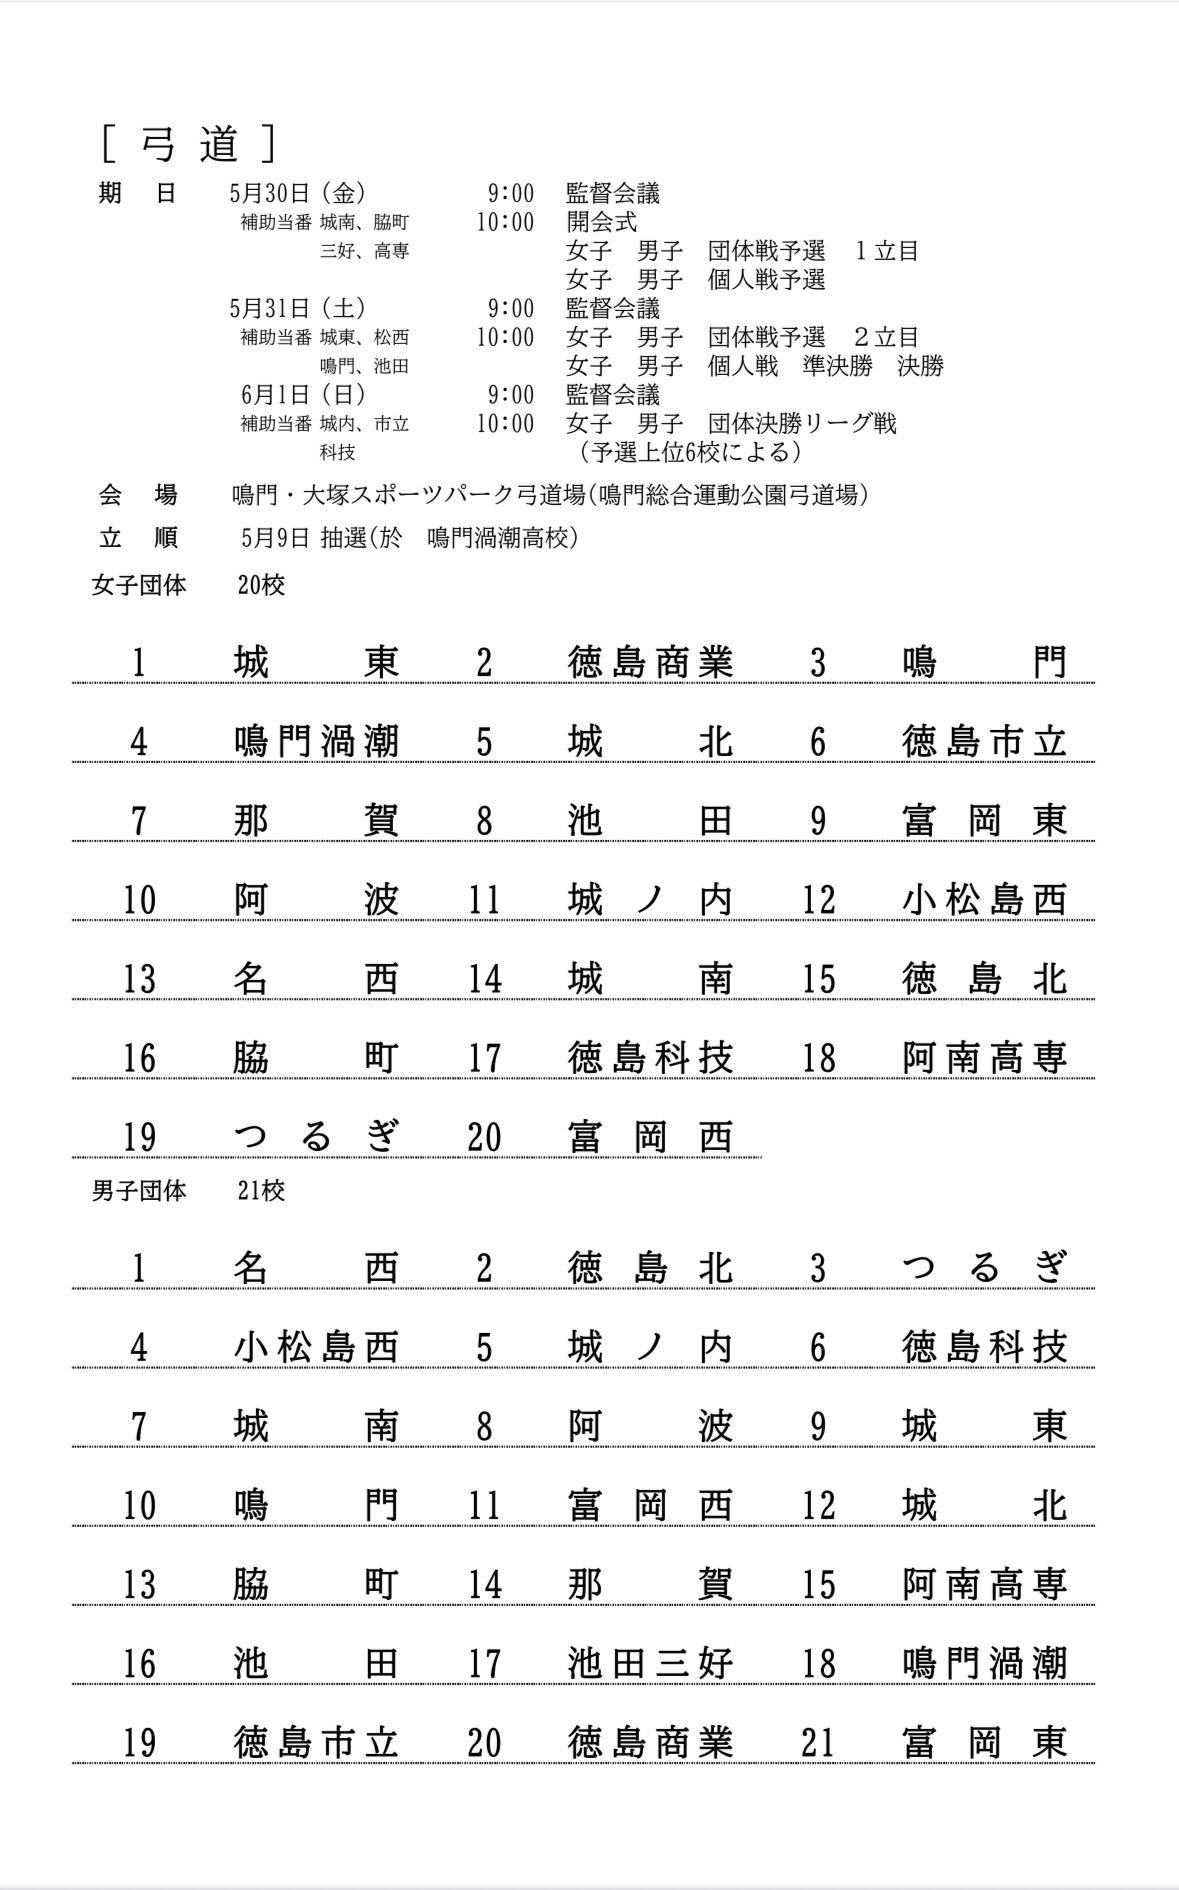 [ 弓 道 ]
期 日 5月30日（金） 9:00 監督会議
補助当番 城南、脇町 10:00 開会式
三好、高専 女子 男子 団体戦予選 １立目
女子 男子 個人戦予選
5月31日（土） 9:00 監督会議
補助当番 城東、松西 10:00 女子 男子 団体戦予選 ２立目
鳴門、池田 女子 男子 個人戦 準決勝 決勝
6月1日（日） 9:00 監督会議
補助当番 城内、市立 10:00 女子 男子 団体決勝リーグ戦
科技 （予選上位6校による）
会 場 鳴門・大塚スポーツパーク弓道場(鳴門総合運動公園弓道場)
立 順 5月9日 抽選(於 鳴門渦潮高校)
女子団体 20校
1 城東 2 徳島商業 3 鳴門
4 鳴門渦潮 5 城北 6 徳島市立
7 那賀 8 池田 9 富岡東
10 阿波 11 城ノ内 12 小松島西
13 名西 14 城南 15 徳島北
16 脇町 17 徳島科技 18 阿南高専
19 つるぎ 20 富岡西
男子団体 21校
1 名西 2 徳島北 3 つるぎ
4 小松島西 5 城ノ内 6 徳島科技
7 城南 8 阿波 9 城東
10 鳴門 11 富岡西 12 城北
13 脇町 14 那賀 15 阿南高専
16 池田 17 池田三好 18 鳴門渦潮
19 徳島市立 20 徳島商業 21 富岡東